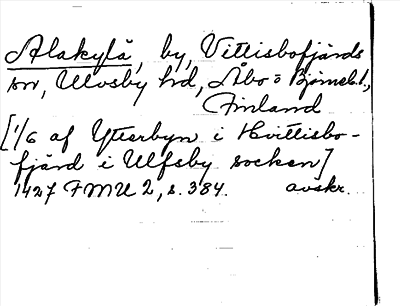 Alakylä, by, Vittisbofjärds
sn, Ulvsby hd, Åbo o Björneb. l.,
Finland
[1/6 af Ytterbyn i Hvittisbo-
fjärd i Ulfsby socken]
1427 FMU 2, s. 384. avskr.